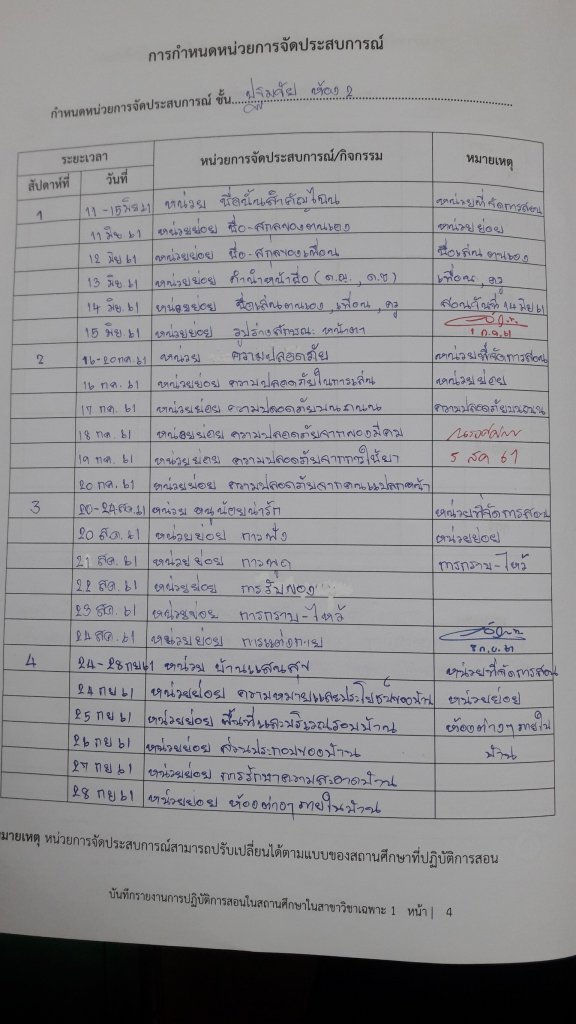 การกำหนดหน่วยการจัดประสบการณ์
กำหนดหน่วยการจัดประสบการณ์ ชั้น ปฐมวัย ห้อง 2
ระยะเวลา หน่วยการจัดประสบการณ์/กิจกรรม หมายเหตุ
สัปดาห์ที่ วันที่
1 11 -15 มิย 61 หน่วย ชื่อนั้นสำคัญไฉน หน่วยที่จัดการสอน
11 มิย. 61 หน่วยย่อย ชื่อ-สกุลของตนเอง หน่วยย่อย
12 มิย 61 หน่วยย่อย ชื่อ-สกุลของเพื่อน ชื่อเล่นตนเอง
13 มิย 61 หน่วยย่อย คำนำหน้าชื่อ (ด.ญ., ด.ช) เพื่อน, ครู
14 มิย. 61 หน่วยย่อย ชื่อเล่นตนเอง, เพื่อน, ครู สอนวันที่ 14 มิย 61
15 มิย. 61 หน่วยย่อย รูปร่างลักษณะ หน้าตา 1 ก.ค. 61
2 16-20 กค. 61 หน่วย ความปลอดภัย หน่วยที่จัดการสอน
16 กค. 61 หน่วยย่อย ความปลอดภัยในการเล่น หน่วยย่อย
17 กค. 61 หน่วยย่อย ความปลอดภัยบนถนน ความปลอดภัยบนถนน
18 กค 61 หน่วยย่อย ความปลอดภัยจากของมีคม
19 กค. 61 หน่วยย่อย ความปลอดภัยจากการใช้ยา 5 สค 61
20 กค 61 หน่วยย่อย ความปลอดภัยจากคนแปลกหน้า
3 20-24 สค. 61 หน่วย หนูน้อยน่ารัก หน่วยที่จัดการสอน
20 สค. 61 หน่วยย่อย การฟัง หน่วยย่อย
21 สค. 61 หน่วยย่อย การพูด การกราบ-ไหว้
22 สค. 61 หน่วยย่อย การรับของ
23 สค. 61 หน่วยย่อย การกราบ-ไหว้
24 สค. 61 หน่วยย่อย การแต่งกาย 8 ก.ย. 61
4 24-28 กย 61 หน่วย บ้านแสนสุข หน่วยที่จัดการสอน
24 กย 61 หน่วยย่อย ความหมายและประโยชน์ของบ้าน หน่วยย่อย
25 กย 61 หน่วยย่อย พื้นที่และบริเวณรอบบ้าน ห้องต่างๆภายใน
26 กย 61 หน่วยย่อย ส่วนประกอบของบ้าน บ้าน
27 กย 61 หน่วยย่อย การรักษาความสะอาดบ้าน
28 กย 61 หน่วยย่อย ห้องต่างๆภายในบ้าน
หมายเหตุ หน่วยการจัดประสบการณ์สามารถปรับเปลี่ยนได้ตามแบบของสถานศึกษาที่ปฏิบัติการสอน
บันทึกรายงานการปฏิบัติการสอนในสถานศึกษาในสาขาวิชาเฉพาะ 1 หน้า | 4